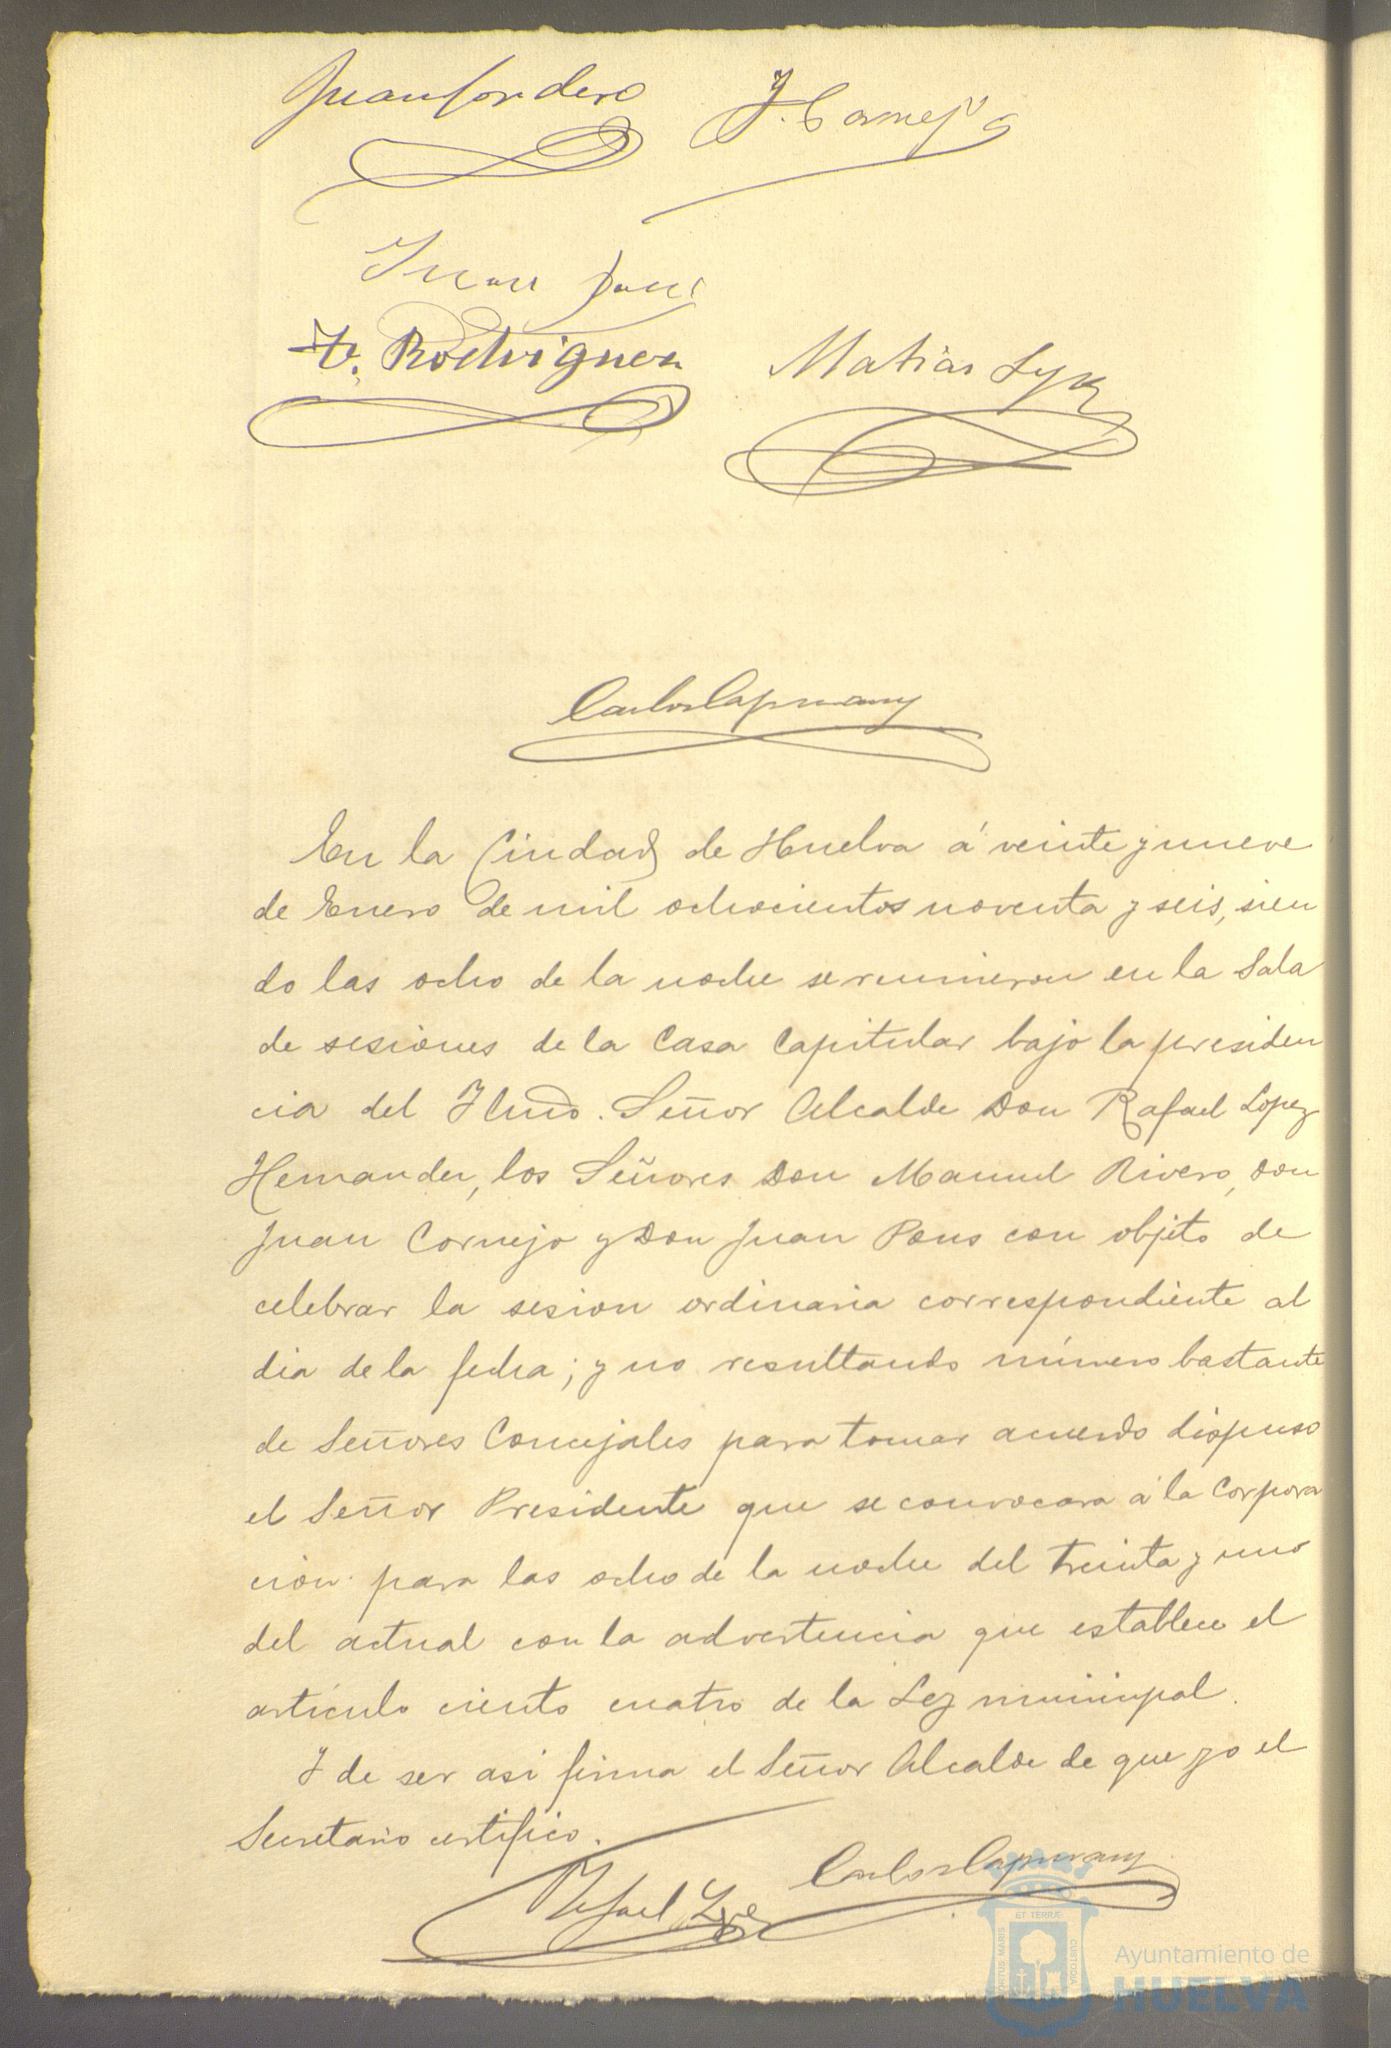 Juan Cordero
J. Cornejo
Juan Pons
F. Rodriguez
Matias López
Carlos Capmany
En la Ciudad de Huelva á veinte y nueve
de Enero de mil ochocientos noventa y seis, sien
do las ocho de la noche se reunieron en la Sala
de sesiones de la Casa Capitular bajo la presiden
cia del Ilmo. Señor Alcalde Don Rafael López
Hernandez, los Señores Don Manuel Rivero, Don
Juan Cornejo y Don Juan Pons con objeto de
celebrar la sesion ordinaria correspondiente al
dia de la fecha; y no resultando número bastante
de Señores Concejales para tomar acuerdo dispuso
el Señor Presidente que se convocara á la Corpora
cion para las ocho de la noche del treinta y uno
del actual con la advertencia que establece el
artículo ciento cuatro de la Ley municipal.
Y de ser asi firma el Señor Alcalde de que yo el
Secretario certifico.
Rafael López
Carlos Capmany
ET TERRÆ
PORTUS MARIS
CUSTODIA
Ayuntamiento de
HUELVA